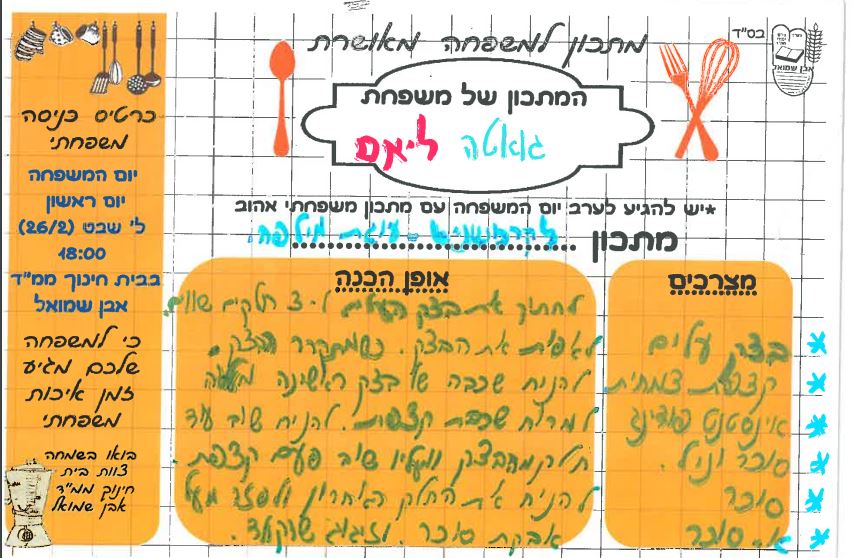 בס"ד
אבן שמואל
מתכון למשפחה מאושרת
המתכון של משפחת
גואטה ליאם
*יש להגיע לערב יום המשפחה עם מתכון משפחתי אהוב
מתכון
עוגת
מצרכים
בצק עלים
קצפת צמחית
אינסטנט פודינג
סוכר וניל
סוכר
א. סוכר
אופן הכנה
לחתוך את בצק העלים ל-3 חלקים שווים.
לאפות את הבצק. כשמתקרר הבצק
להניח שכבה של בצק ראשינה
למרוח שכבת קצפת. להניח שוב עוד
חלק מהבצק ומעליו שוב פעם קצפת.
להניח את החלק האחרון ולפזר מעל
אבקת סוכר. וזיגוג שוקולד.
כרטיס כניסה
משפחתי
יום המשפחה
יום ראשון
ל' שבט (26/2)
18:00
בבית חינוך ממ"ד
אבן שמואל
כי למשפחה
שלכם מגיע
זמן איכות
משפחתי
בואו בשמחה
צוות בית
חינוך ממ"ד
אבן שמואל